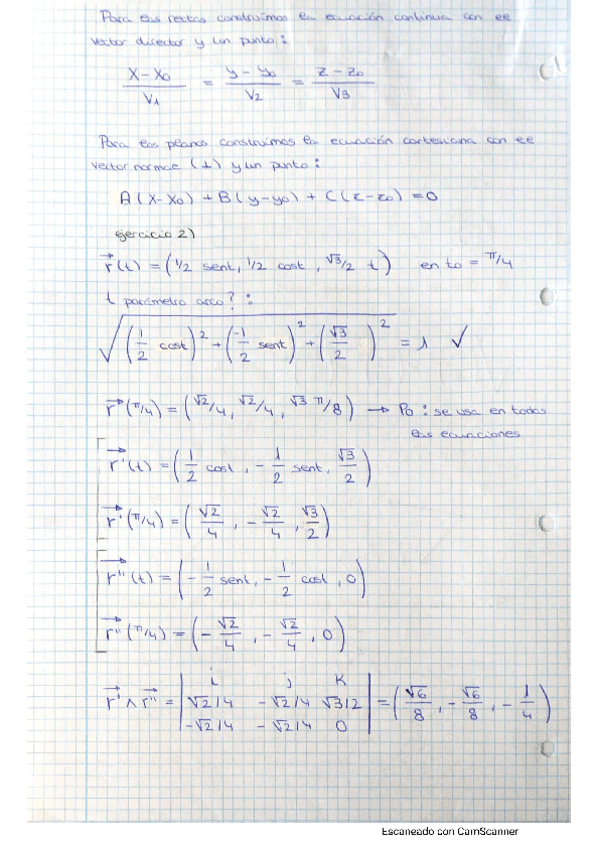 Para las rectas construímos la ecuación continua con el
vector director y un punto:
X-X₀/V₁ = y-y₀/V₂ = z-z₀/V₃
Para los planos construímos la ecuación cartesiana con el
vector normal (⊥) y un punto:
A(X-X₀) + B(y-y₀) + C(z-z₀) = 0
ejercicio 2)
r⃗(t) = (1/2 sent, 1/2 cost, √3/2 t) en t₀ = π/4
t parámetro arco?:
√((1/2 cost)² + (-1/2 sent)² + (√3/2)²) = 1 ✓
r⃗(π/4) = (√2/4, √2/4, √3 π/8) → P₀: se usa en todas
las ecuaciones
r⃗'(t) = (1/2 cost, -1/2 sent, √3/2)
r⃗'(π/4) = (√2/4, -√2/4, √3/2)
r⃗''(t) = (-1/2 sent, -1/2 cost, 0)
r⃗''(π/4) = (-√2/4, -√2/4, 0)
i j k
r⃗' ∧ r⃗'' = | √2/4 -√2/4 √3/2 | = (√6/8, -√6/8, -1/4)
-√2/4 -√2/4 0
Escaneado con CamScanner